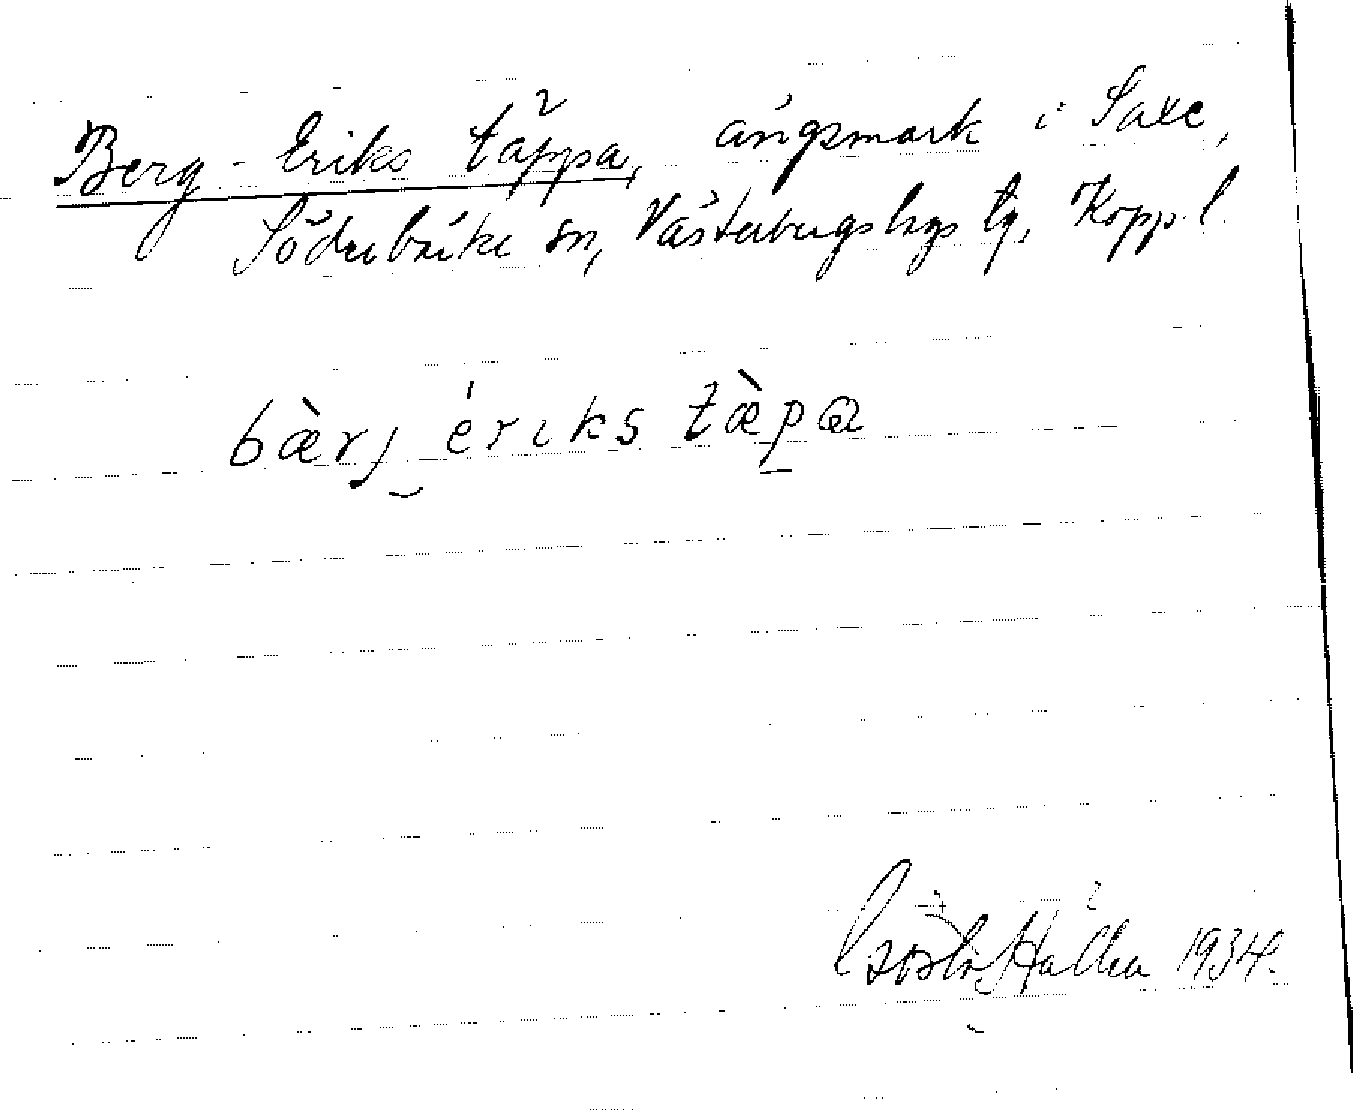 Berg-Eriks täppa, ängsmark i Saxe,
Söderbärke sn, Västerbergslags tg, Kopp. l.
bæ̀rj ériks tæ̀pa
1934.